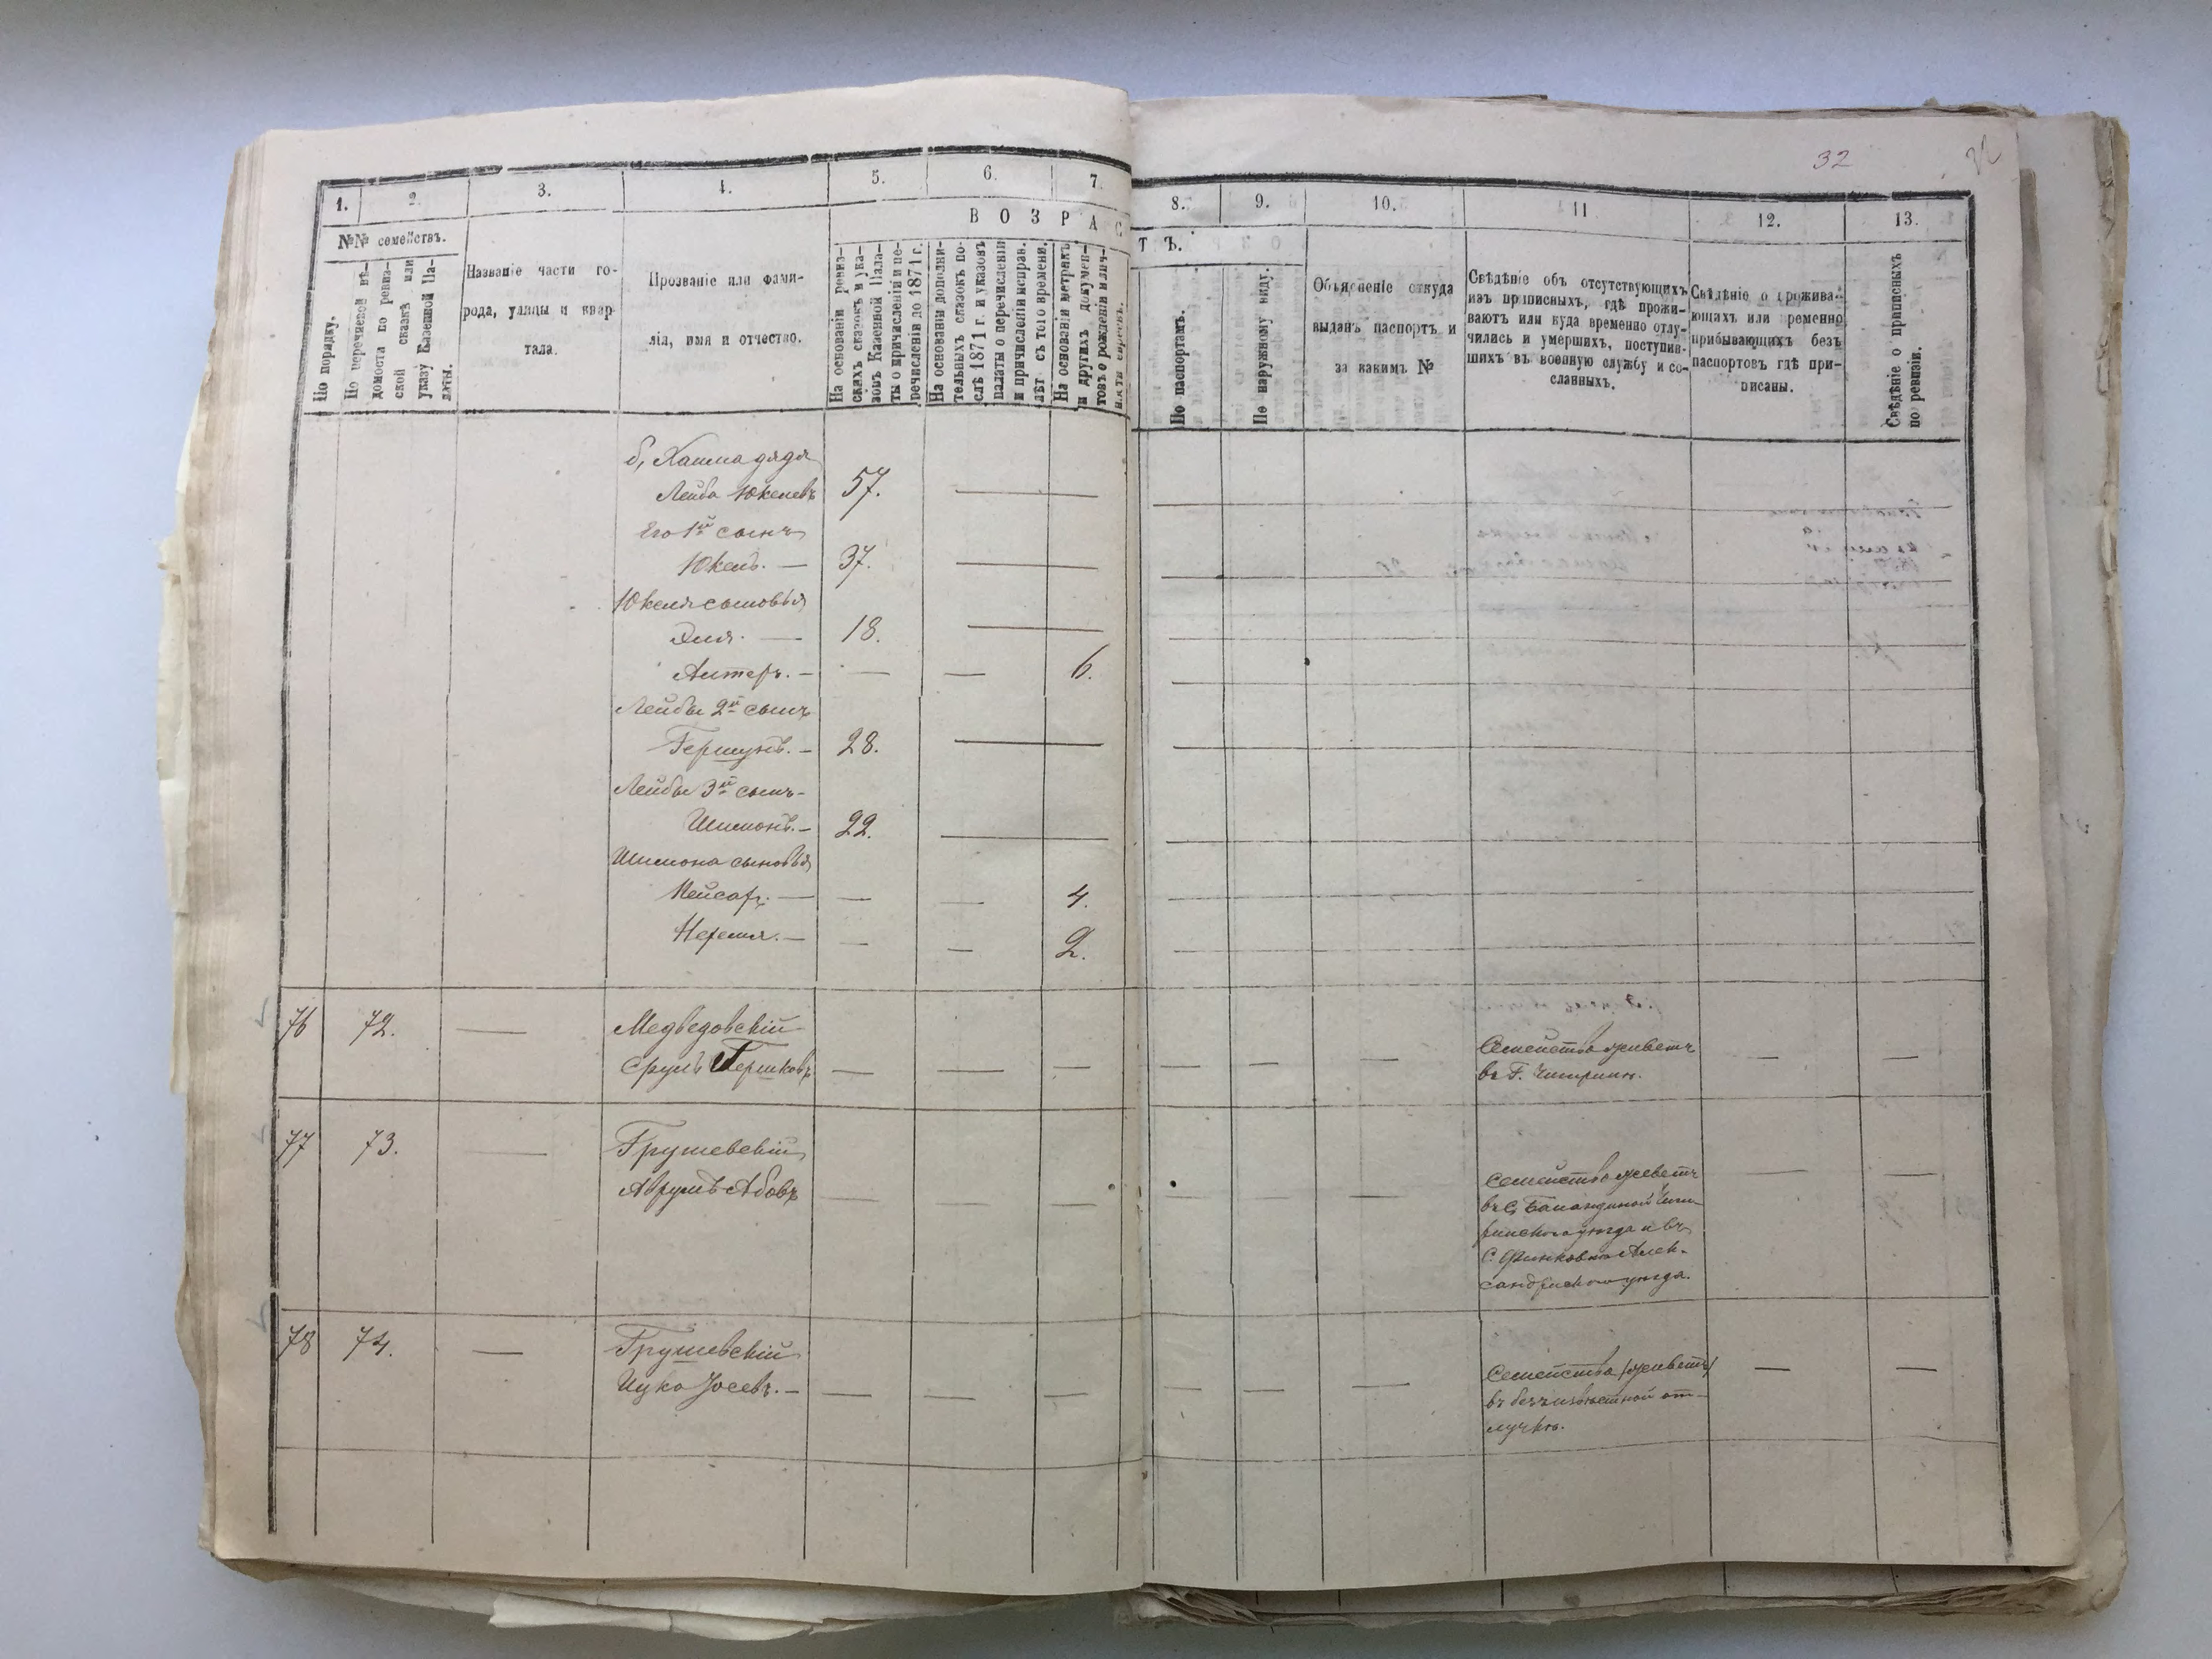 32
1. 2. 3. 4. 5. 6. 7. 8. 9. 10. 11 12. 13.
№№ семействъ.
ВОЗРАСТЪ.
По порядку.
По перечневой вѣ-
домости по ревиз-
ской сказкѣ или
указу Казенной Па-
латы.
Названіе части го-
рода, улицы и квар
тала.
Прозваніе или фами-
лія, имя и отчество.
На основаніи ревиз-
скихъ сказокъ и ука-
зовъ Казенной Пала-
ты о причисленіи и пе-
речисленіи до 1871 г.
На основаніи дополни-
тельныхъ сказокъ по-
слѣ 1871 г. и указовъ
палаты о перечисленіи
и причисленіи исправ.
лѣт съ того времени.
На основаніи метракъ
и другихъ докумен-
товъ о рожденіи и лич-
ности евреевъ.
По паспортамъ.
По наружному виду.
Объясненіе откуда
выданъ паспортъ и
за какимъ №
Свѣдѣніе объ отсутствующихъ
изъ приписныхъ, гдѣ прожи-
ваютъ или куда временно отлу-
чились и умершихъ, поступив-
шихъ въ военную службу и со-
сланныхъ.
Свѣдѣніе о прожива-
ющихъ или временно
прибывающихъ безъ
паспортовъ гдѣ при-
писаны.
Свѣдѣніе о приписныхъ
по ревизіи.
б, Хаима дядя
Лейба Юкелевъ 57. —
Его 1й сынъ
Юкель. — 37. —
Юкеля сыновья
Эля. — 18. —
Антеръ. — — — 6.
Лейбы 2й сынъ
Гершунъ. — 28. —
Лейбы 3й сынъ —
Шимонъ. — 22. —
Шимона сыновья
Пейсах. — — — 4.
— — — 2.
76 72. — Медведовскій
Сруль Гершковъ — — — — — — Семейство живетъ — —
въ Г. Чигиринѣ.
77 73. — Грушевскій
Аврумъ Абовъ — — — — — Семейство живетъ — —
въ С. Баландиной Чиги-
ринскаго уѣзда и въ
Алек-
сандрійскаго уѣзда.
78 74. — Грушевскій
Ицко Іосевъ. — — — — — — — Семейство (живетъ) — —
въ безъизвѣстной от-
лучкѣ.